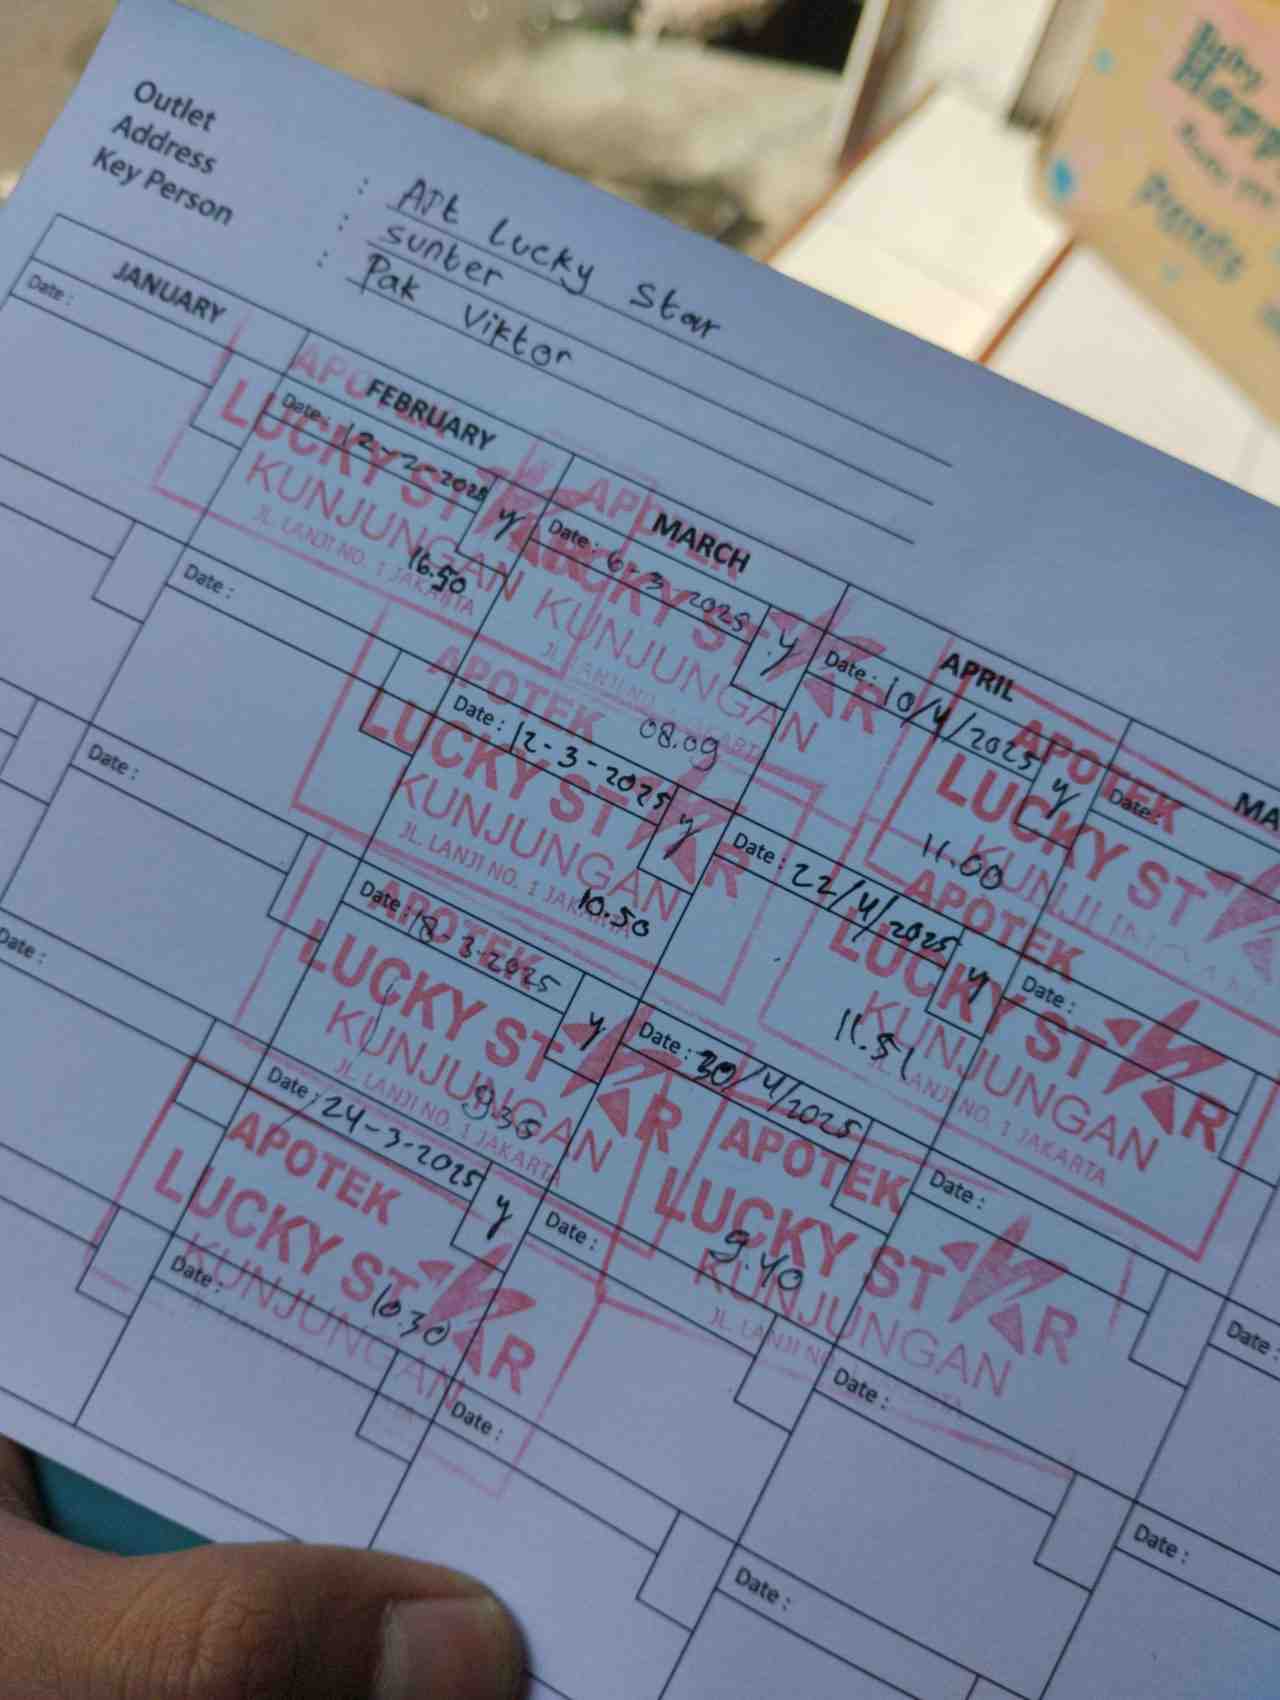 Outlet : Apt Lucky Star
Address : sunter
Key Person : Pak Viktor
JANUARY
FEBRUARY
MARCH
APRIL
MA
Date :
Date : 12-2-2025 y
16.50
APOTEK
LUCKY STAR
KUNJUNGAN
JL. LANJI NO. 1 JAKARTA
Date : 6-3-2025 y
08.09
APOTEK
LUCKY STAR
KUNJUNGAN
JL. LANJI NO. 1 JAKARTA
Date : 10/4/2025 y
11.00
APOTEK
LUCKY ST
KUNJUNGAN
Date :
Date :
Date : 12-3-2025 y
10.50
APOTEK
LUCKY STAR
KUNJUNGAN
JL. LANJI NO. 1 JAKARTA
Date : 22/4/2025 y
11.51
APOTEK
LUCKY STAR
KUNJUNGAN
JL. LANJI NO. 1 JAKARTA
Date :
Date :
Date : 18-3-2025 y
APOTEK
LUCKY STAR
KUNJUNGAN
JL. LANJI NO. 1 JAKARTA
Date : 30/4/2025
9.40
APOTEK
LUCKY STAR
KUNJUNGAN
JL. LANJI NO.
Date :
Date :
Date : 24-3-2025 y
10.30
APOTEK
LUCKY STAR
KUNJUNGAN
Date :
Date :
Date :
Date :
Date :
Date :
Date :
Date :